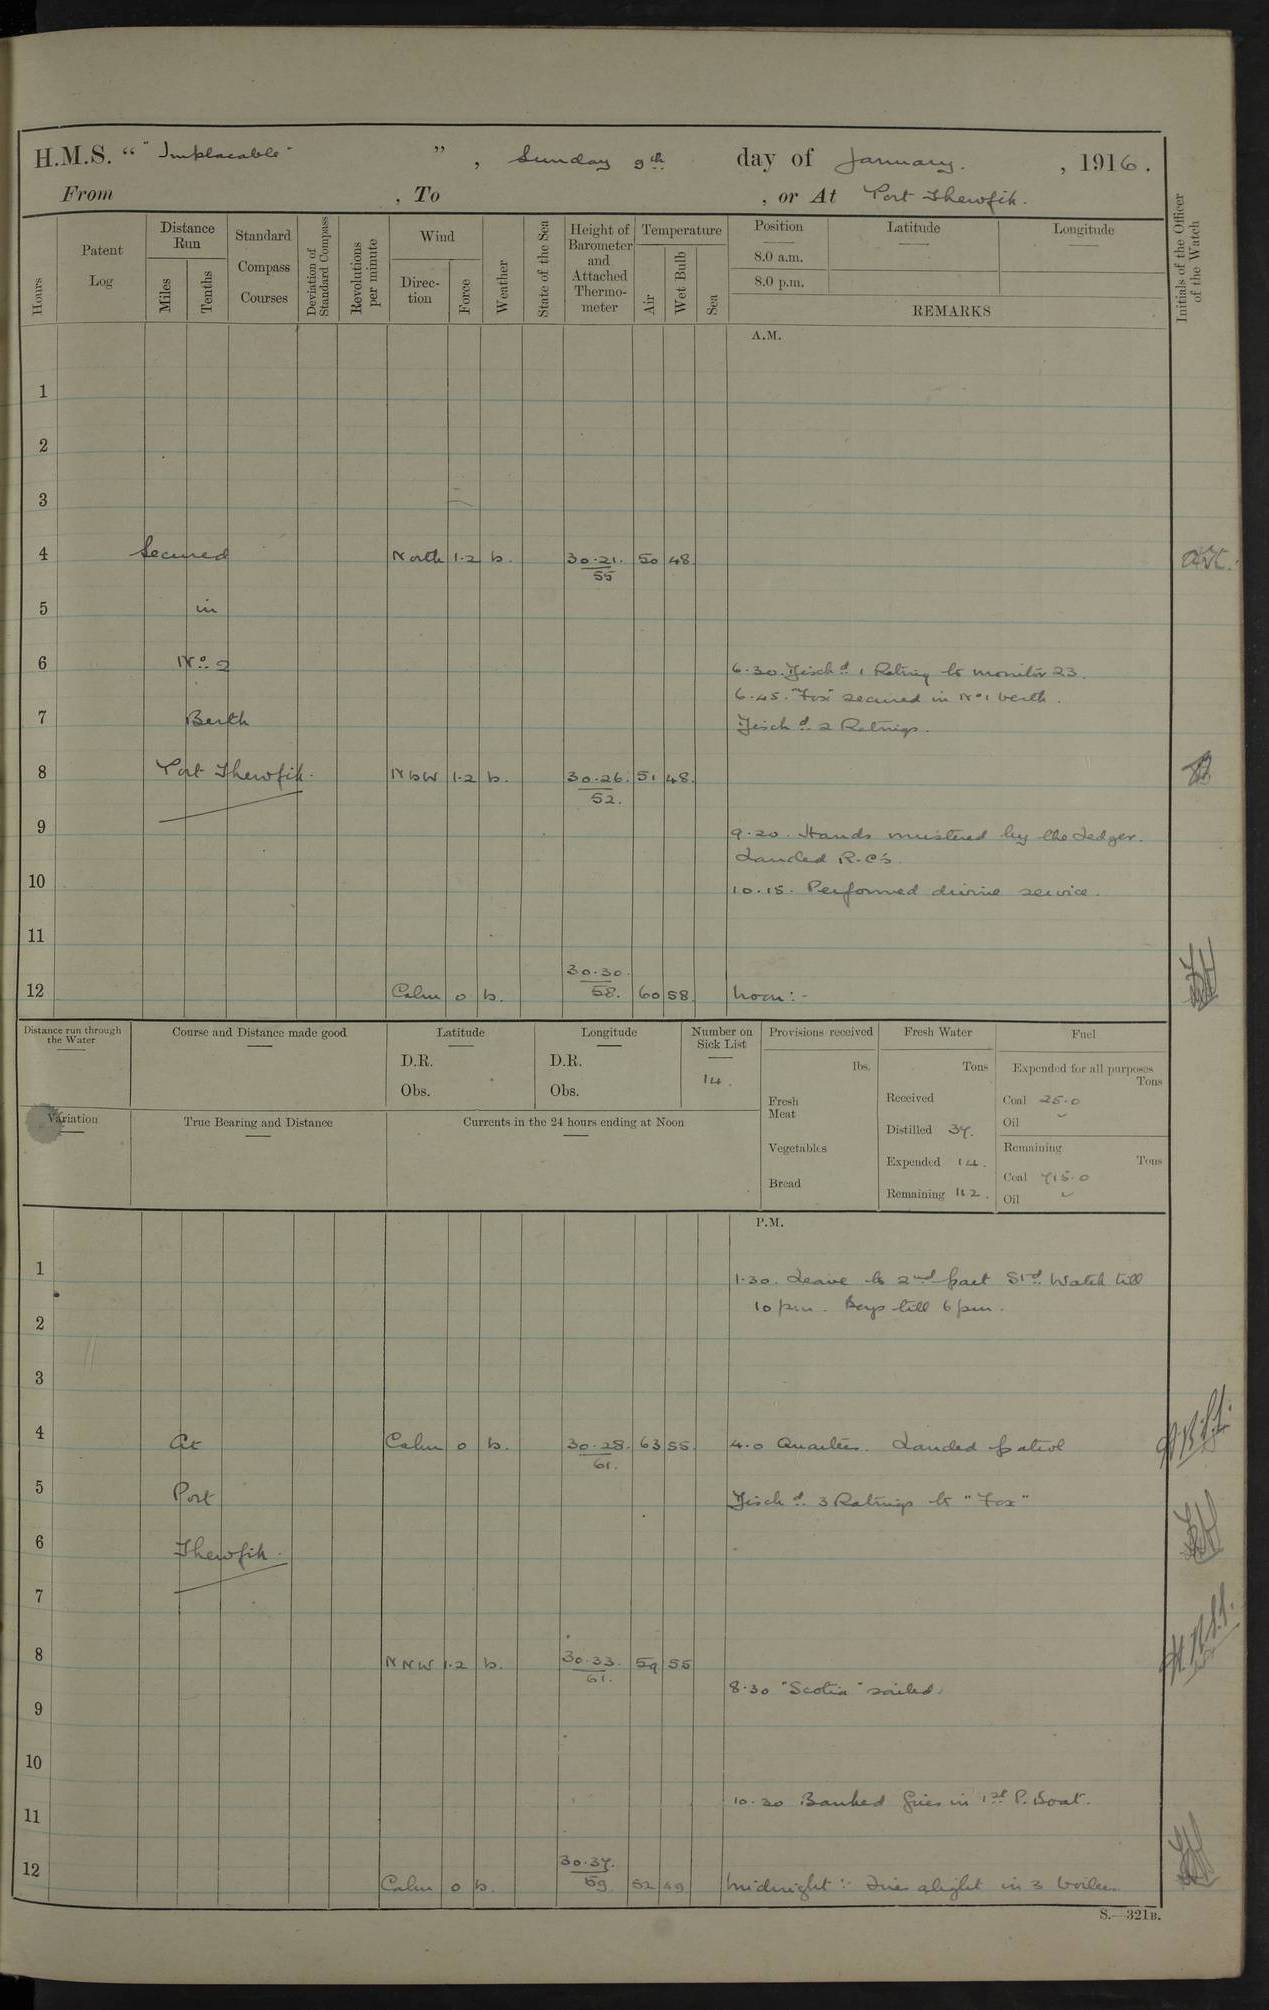 H.M.S. “ "Implacable" ” , Sunday 9th day of January. , 1916.
From , To , or At Port Thewfik.
Hours
Patent Log
Distance Run
Miles
Tenths
Standard Compass Courses
Deviation of Standard Compass
Revolutions per minute
Wind
Direction
Force
Weather
State of the Sea
Height of Barometer and Attached Thermometer
Temperature
Air
Wet Bulb
Sea
Position
8.0 a.m.
8.0 p.m.
Latitude
Longitude
REMARKS
Initials of the Officer of the Watch
A.M.
1
2
3
4 Secured North 1-2 b. 30.21. 50 48
55
5 in
6 No. 2
6.30. Disch'd. 1 Rating to Monitor 23.
6.45. "Fox" secured in No 1 berth.
7 Berth
Disch'd. 2 Ratings.
8 Port Thewfik. NbW 1-2 b. 30.26. 51 48.
52.
9
9.20. Hands mustered by the Ledger.
Landed R.C's.
10
10.15. Performed divine service.
11
30.30.
12 Calm 0 b. 58. 60 58 Noon:-
Distance run through the Water
Course and Distance made good
Latitude
D.R.
Obs.
Longitude
D.R.
Obs.
Number on Sick List
14.
Provisions received
lbs.
Fresh Meat
Vegetables
Bread
Fresh Water
Tons
Received
Distilled 37.
Expended 14.
Remaining 112.
Fuel
Expended for all purposes
Tons
Coal 25.0
Oil
Remaining
Tons
Coal 715.0
Oil
Variation
True Bearing and Distance
Currents in the 24 hours ending at Noon
P.M.
1
1.30. Leave to 2nd part Std. Watch till
10 pm. Boys till 6 pm.
2
3
4 At Calm 0 b. 30.28. 63 55. 4.0 Quarters. Landed patrol
61.
5 Port
Disch'd. 3 Ratings to "Fox"
6 Thewfik.
7
8 NNW 1-2 b. 30.33. 59 55
61.
8.30 "Scotia" sailed.
9
10
10.30 Banked fires in 1st P. Boat.
11
30.37.
12 Calm 0 b. 59. 52 49 Midnight:- Fires alight in 3 boilers.
S.—321B.